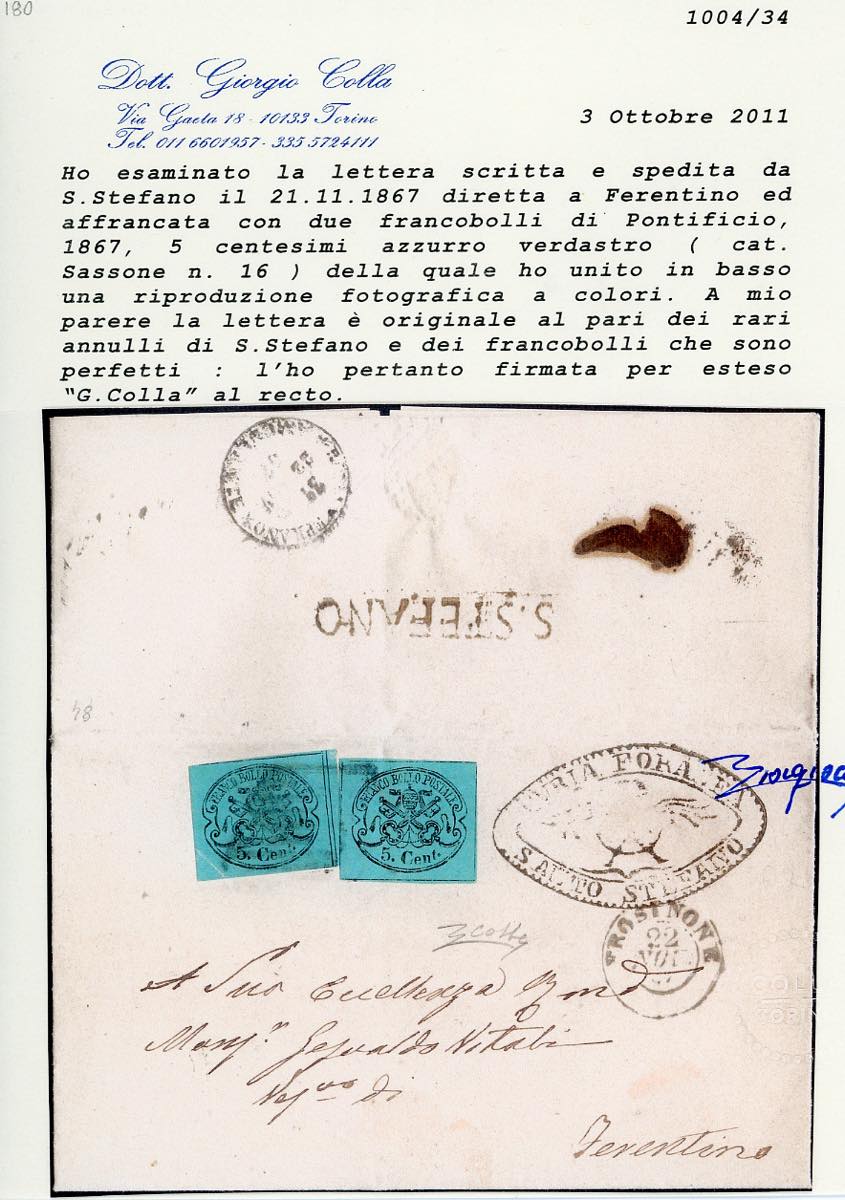 180
1004/34
Dott. Giorgio Colla
Via Gaeta 18 - 10133 Torino
Tel. 011 6601957 - 335 5724111
3 Ottobre 2011
Ho esaminato la lettera scritta e spedita da
S.Stefano il 21.11.1867 diretta a Ferentino ed
affrancata con due francobolli di Pontificio,
1867, 5 centesimi azzurro verdastro ( cat.
Sassone n. 16 ) della quale ho unito in basso
una riproduzione fotografica a colori. A mio
parere la lettera è originale al pari dei rari
annulli di S.Stefano e dei francobolli che sono
perfetti : l'ho pertanto firmata per esteso
"G.Colla" al recto.
S.STEFANO
84
FRANCO BOLLO POSTALE
5. Cent.
FRANCO BOLLO POSTALE
5. Cent.
FORANEA
SANTO STEFANO
FROSINONE
22
A Sua Eccellenza
Gesualdo Vitali
di
Ferentino